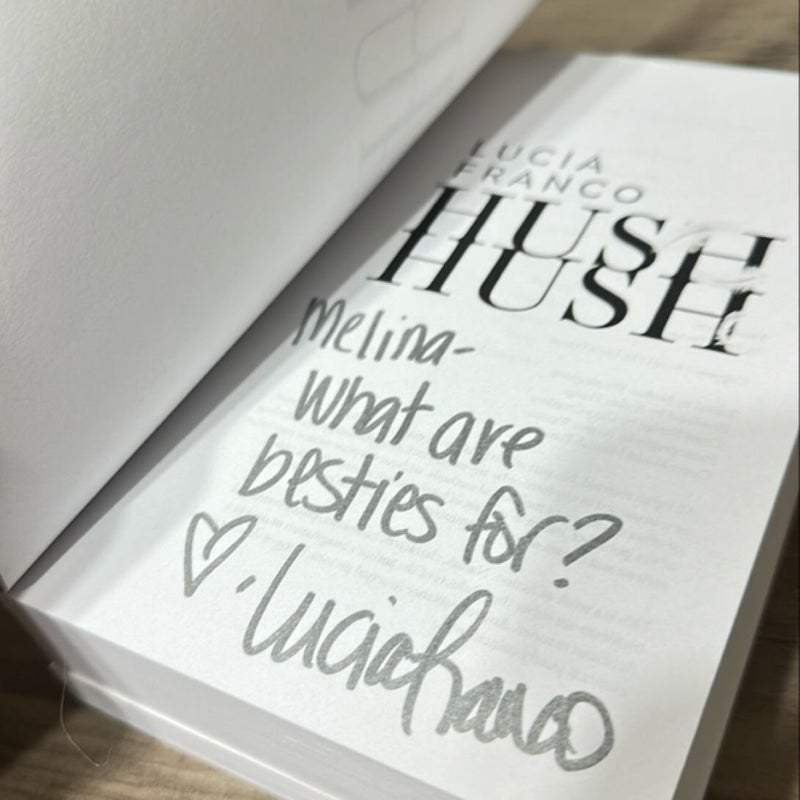 LUCIA
FRANCO
HUSH
HUSH
Melina-
What are
besties for?
♡, Lucia Franco